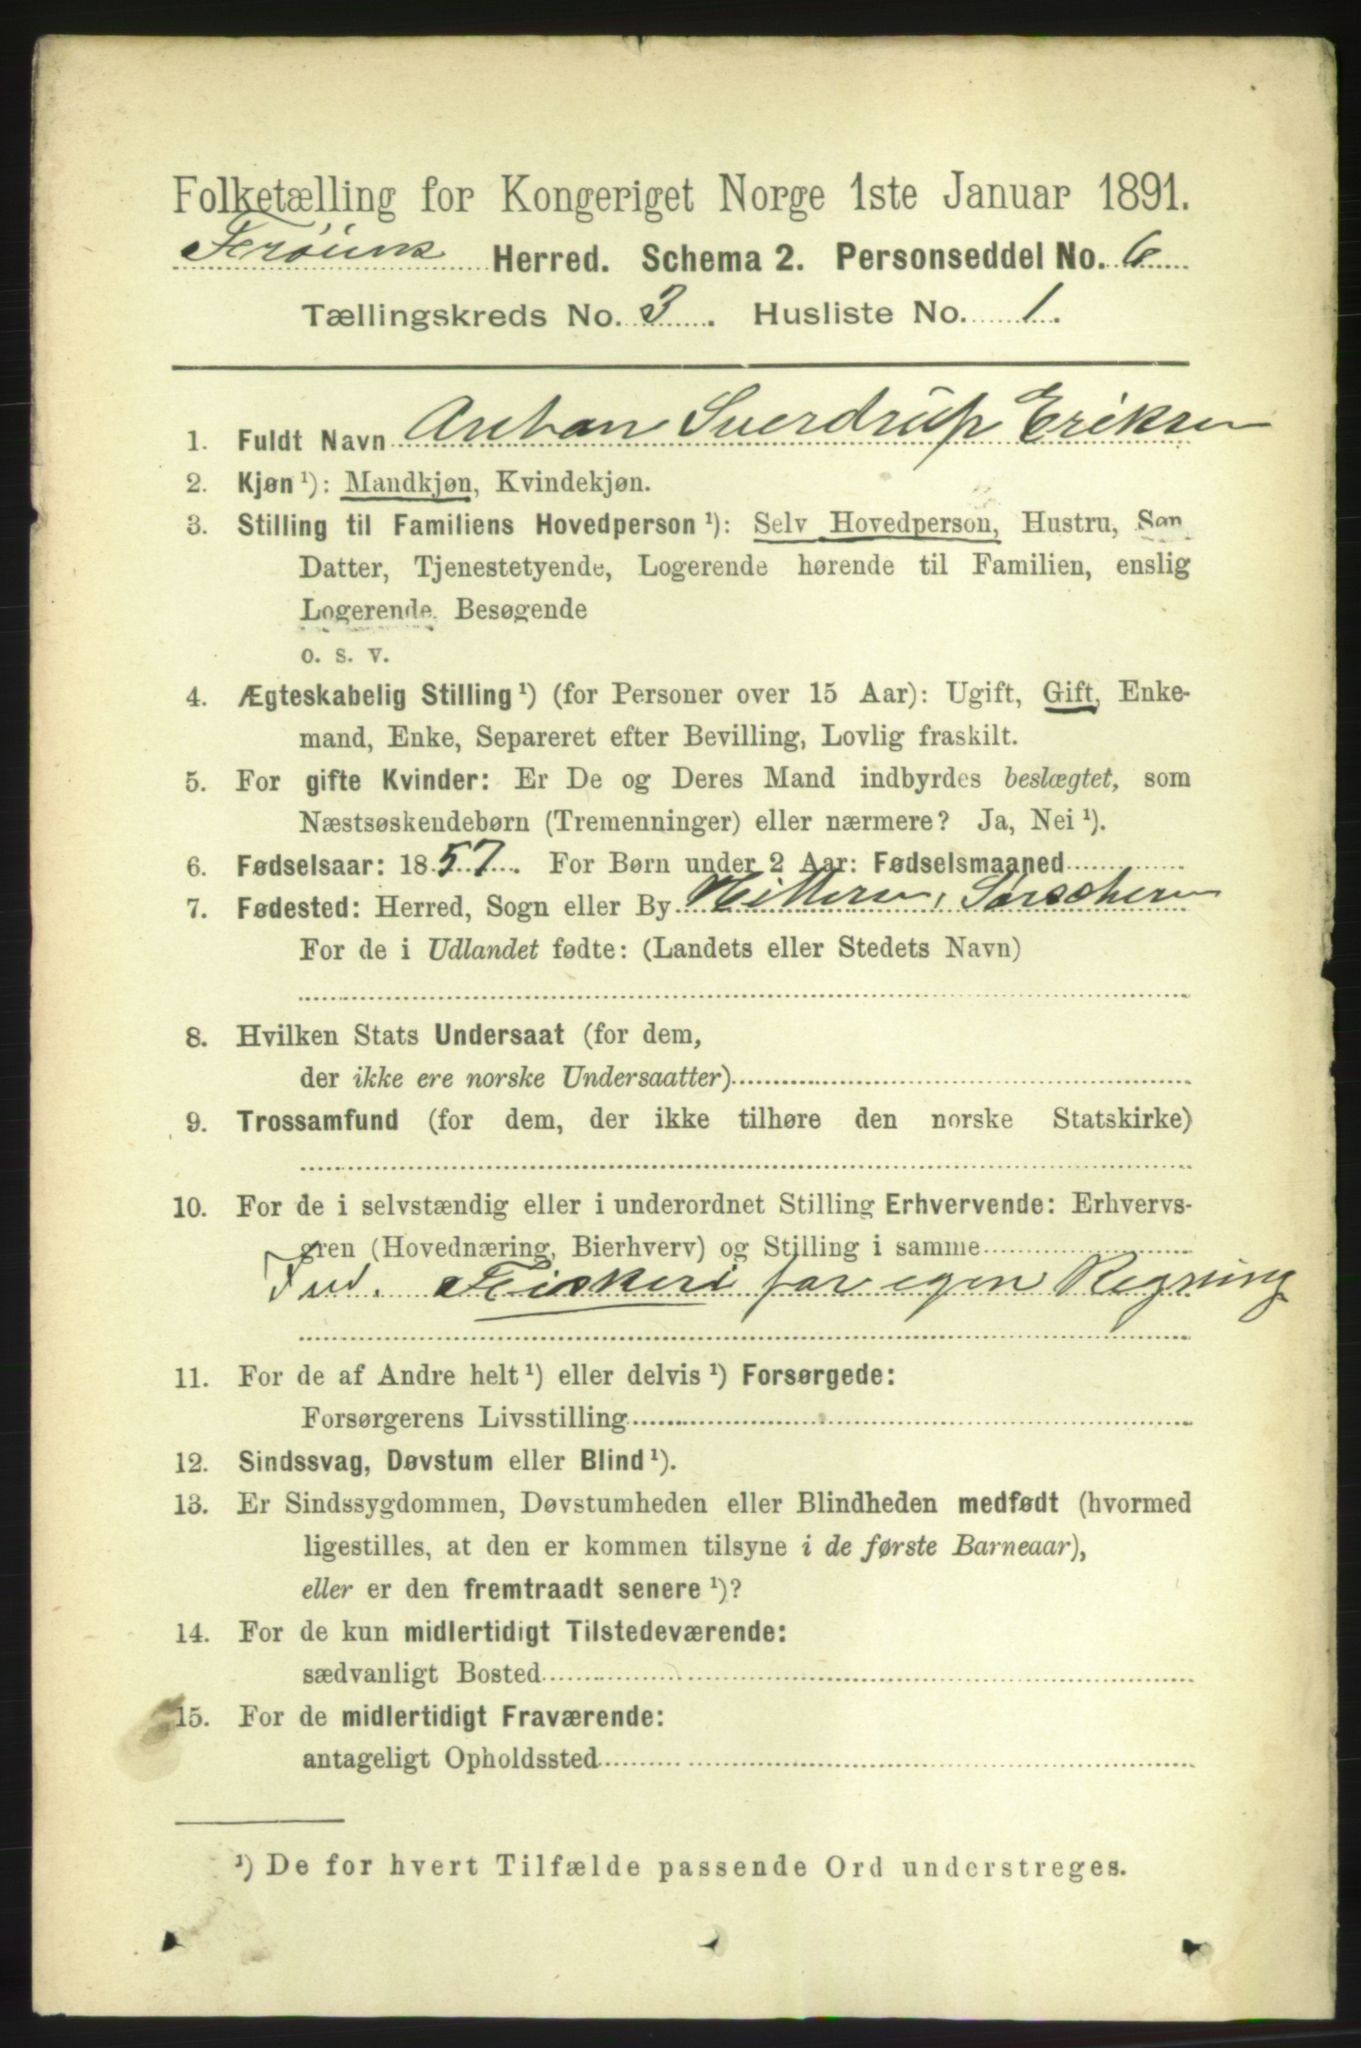 Folketælling for Kongeriget Norge 1ste Januar 1891.
Frøiens Herred. Schema 2. Personseddel No. 6
Tællingskreds No. 3. Husliste No. 1.
1. Fuldt Navn Anton Sverdrup Eriksen
2. Kjøn ¹): Mandkjøn, Kvindekjøn.
3. Stilling til Familiens Hovedperson ¹): Selv Hovedperson, Hustru, Søn
Datter, Tjenestetyende, Logerende hørende til Familien, enslig
Logerende, Besøgende
o. s. v.
4. Ægteskabelig Stilling ¹) (for Personer over 15 Aar): Ugift, Gift, Enke-
mand, Enke, Separeret efter Bevilling, Lovlig fraskilt.
5. For gifte Kvinder: Er De og Deres Mand indbyrdes beslægtet, som
Næstsøskendebørn (Tremenninger) eller nærmere? Ja, Nei ¹).
6. Fødselsaar: 1857. For Børn under 2 Aar: Fødselsmaaned
7. Fødested: Herred, Sogn eller By Hitteren,
For de i Udlandet fødte: (Landets eller Stedets Navn)
8. Hvilken Stats Undersaat (for dem,
der ikke ere norske Undersaatter)
9. Trossamfund (for dem, der ikke tilhøre den norske Statskirke)
10. For de i selvstændig eller i underordnet Stilling Erhvervende: Erhvervs-
gren (Hovednæring, Bierhverv) og Stilling i samme
Ind. Fiskeri for egen Regning
11. For de af Andre helt ¹) eller delvis ¹) Forsørgede:
Forsørgerens Livsstilling
12. Sindssvag, Døvstum eller Blind ¹).
13. Er Sindssygdommen, Døvstumheden eller Blindheden medfødt (hvormed
ligestilles, at den er kommen tilsyne i de første Barneaar),
eller er den fremtraadt senere ¹)?
14. For de kun midlertidigt Tilstedeværende:
sædvanligt Bosted
15. For de midlertidigt Fraværende:
antageligt Opholdssted
¹) De for hvert Tilfælde passende Ord understreges.